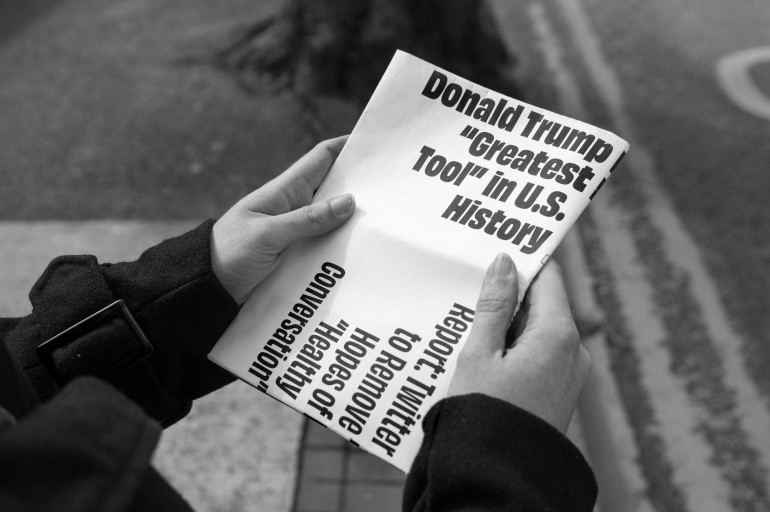 Donald Trump
"Greatest
Tool" in U.S.
History
Report: Twitter
to Remove
Hopes of
"Healthy
Conversation"